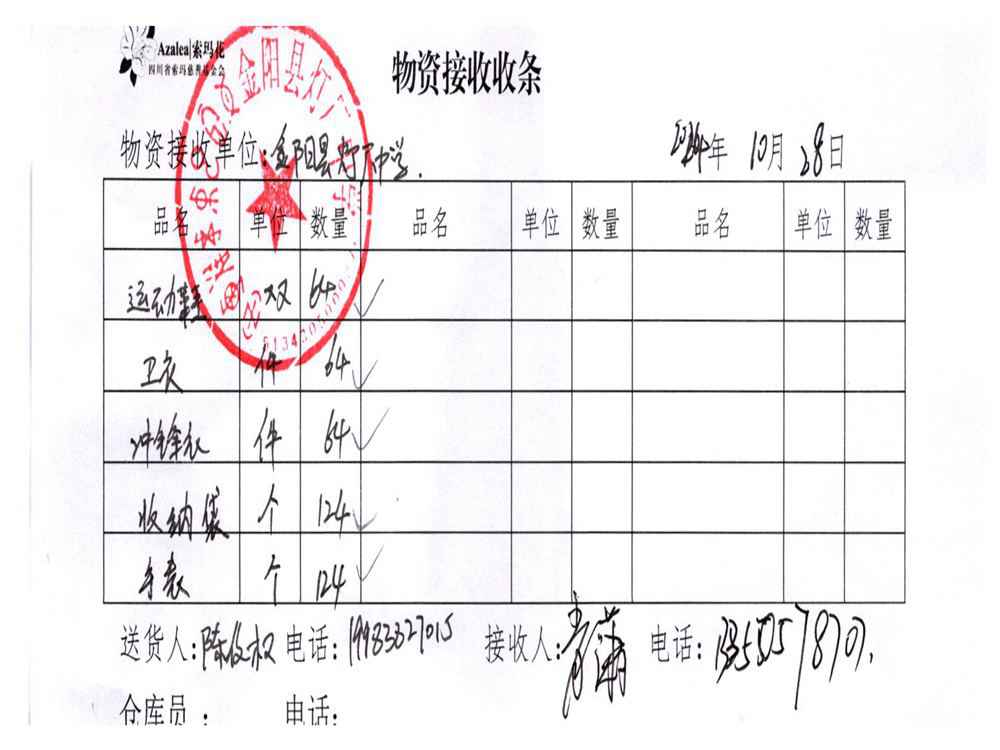 Azalea|索玛花
四川省索玛慈善基金会
物资接收收条
物资接收单位:金阳县灯厂中学.
2024年 10月 28日
品名 单位 数量 品名 单位 数量 品名 单位 数量
运动鞋 双 64
卫衣 件 64
冲锋衣 件 64
收纳袋 个 124
手表 个 124
送货人: 电话:19983327015 接收人: 电话:
仓库员 : 电话:
金阳县灯厂